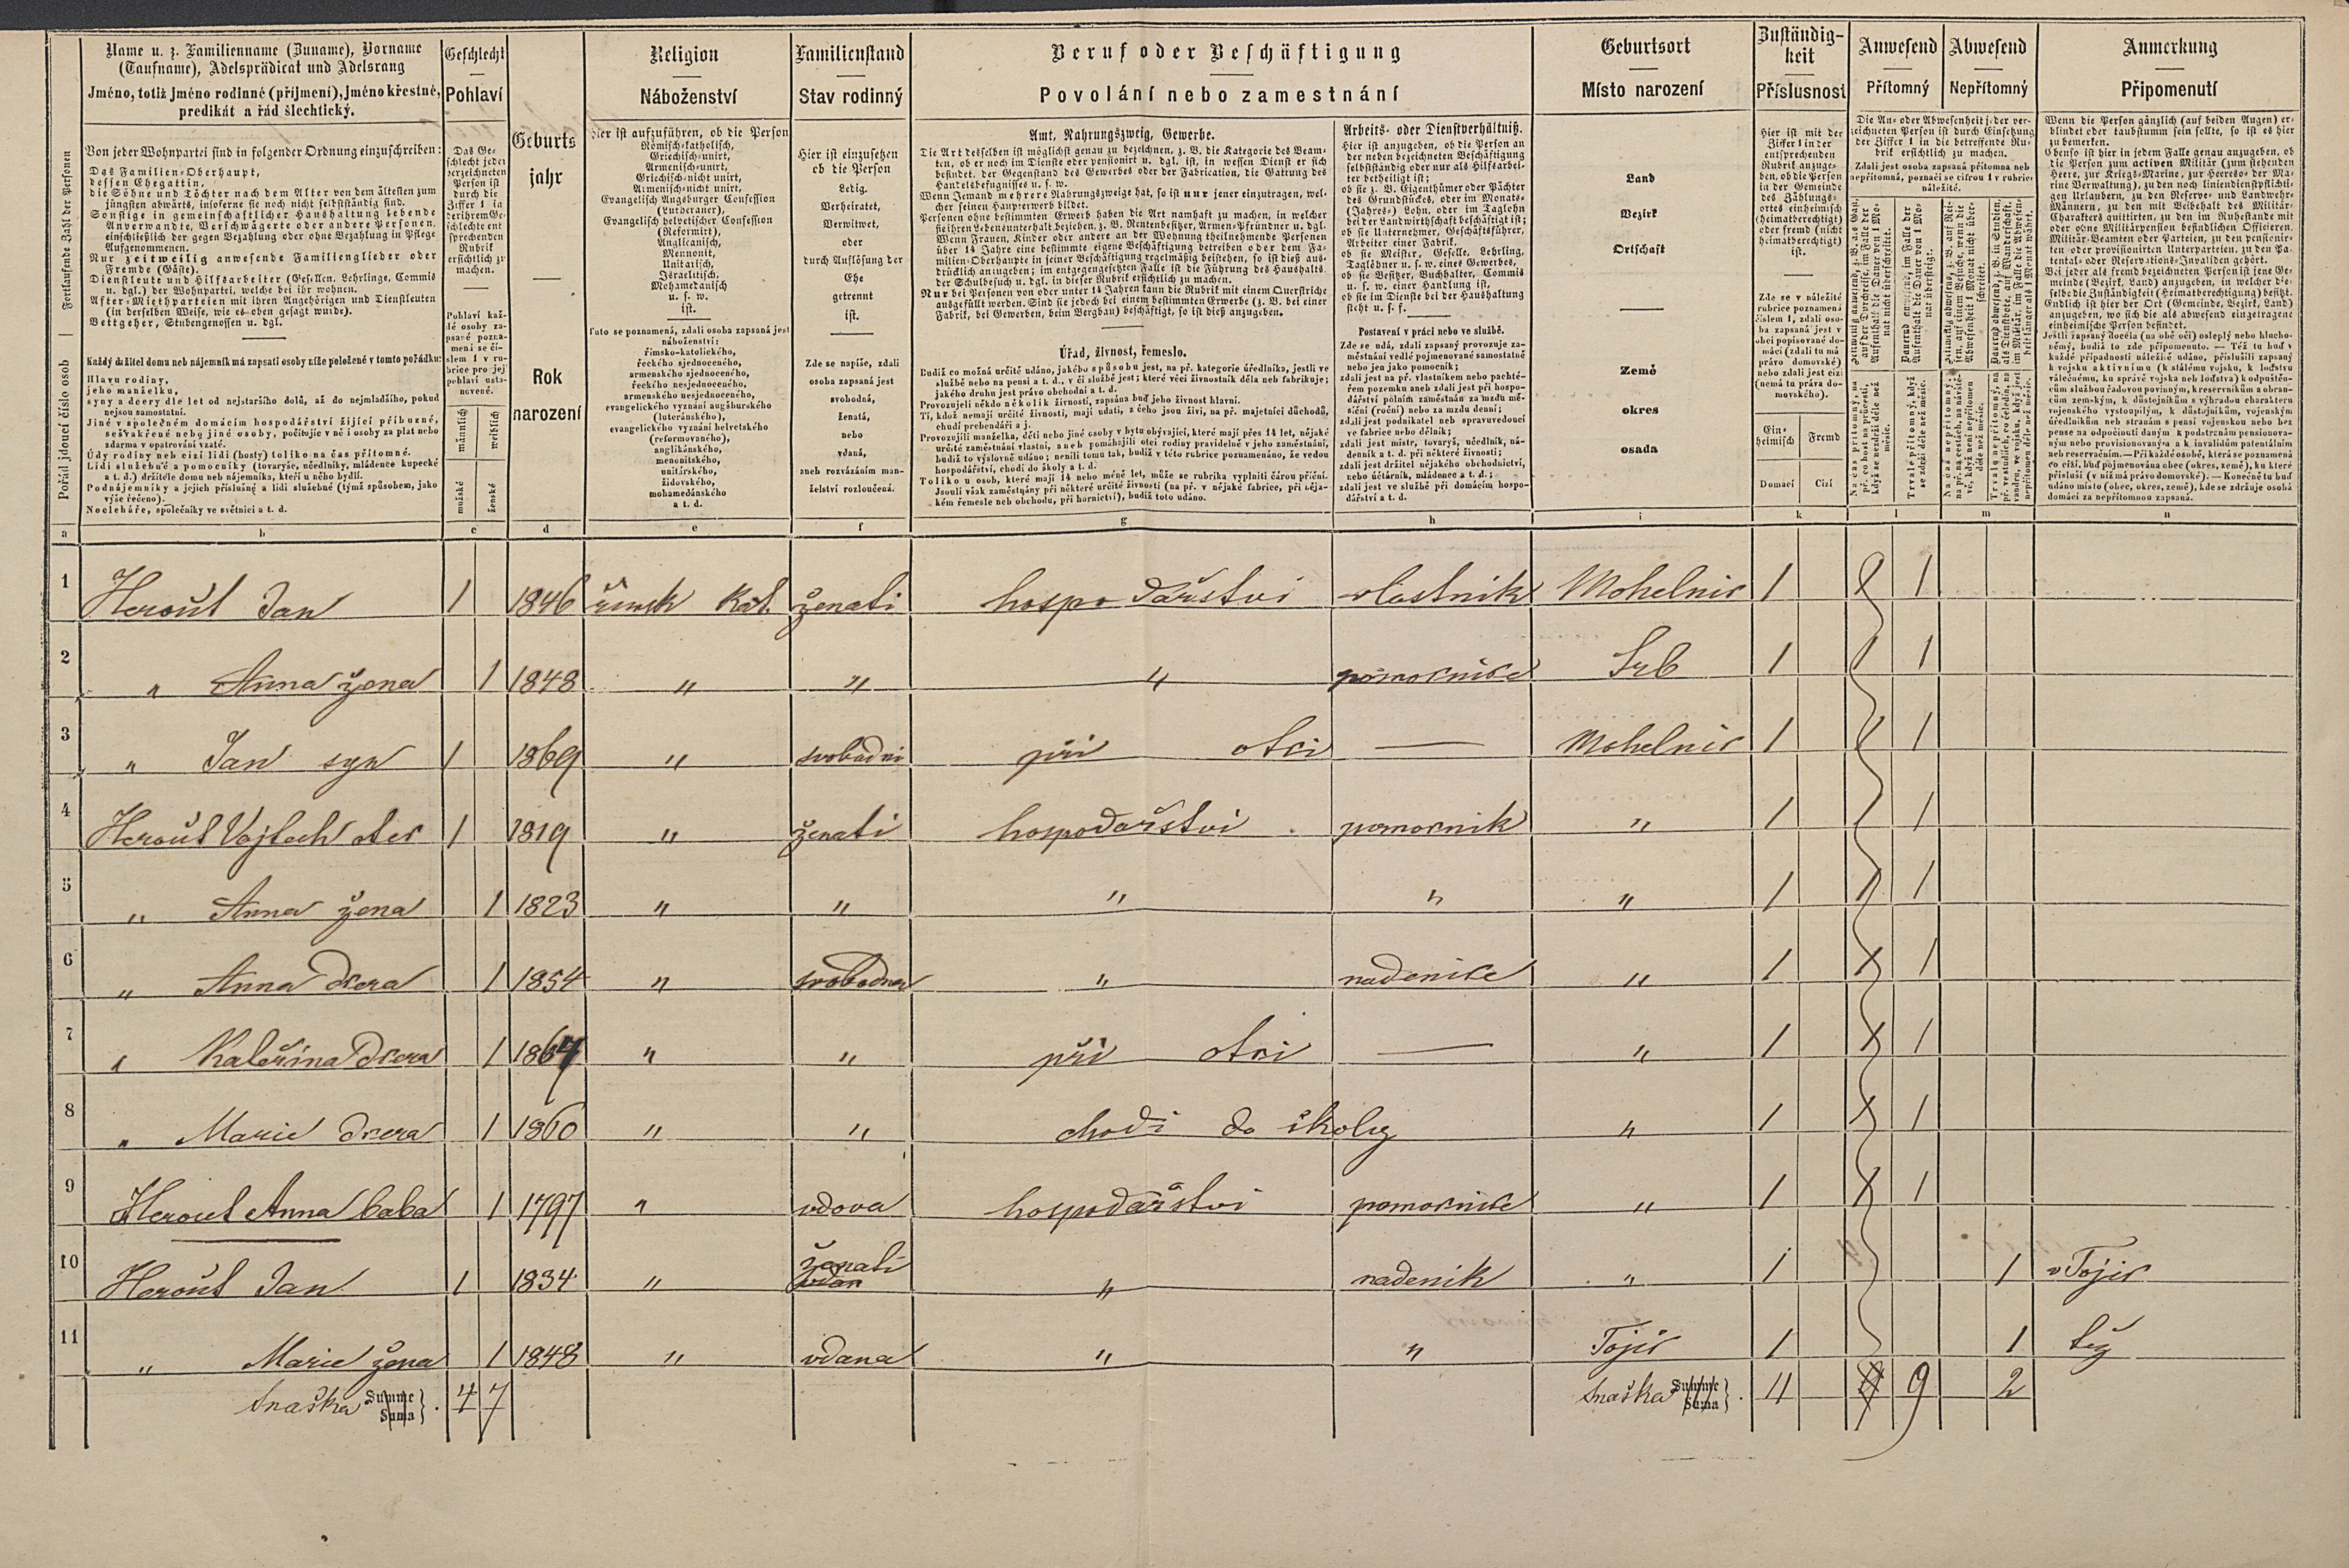 Name u. z. Familienname (Zuname), Vorname
(Taufname), Adelsprädicat und Adelsrang
Jméno, totiž jméno rodinné (příjmení), jméno křestné,
predikát a řád šlechtický.
Geschlecht
Pohlaví
Geburts
jahr
Rok
narození
Religion
Náboženství
Familienstand
Stav rodinný
Beruf oder Beschäftigung
Povolání nebo zamestnání
Geburtsort
Místo narození
Zuständig-
keit
Příslusnost
Anwesend
Přítomný
Abwesend
Nepřítomný
Anmerkung
Připomenutí
Fortlaufende Zahl der Personen
Pořád jdoucí číslo osob
Von jeder Wohnpartei sind in folgender Ordnung einzuschreiben:
Das Familien-Oberhaupt,
dessen Ehegattin,
die Söhne und Töchter nach dem Alter von dem ältesten zum
jüngsten abwärts, insoferne sie noch nicht selbstständig sind.
Sonstige in gemeinschaftlicher Haushaltung lebende
Anverwandte, Verschwägerte oder andere Personen,
einschließlich der gegen Bezahlung oder ohne Bezahlung in Pflege
Aufgenommenen.
Nur zeitweilig anwesende Familienglieder oder
Fremde (Gäste).
Dienstleute und Hilfsarbeiter (Gesellen, Lehrlinge, Commis
u. dgl.) der Wohnpartei, welche bei ihr wohnen.
After-Miethparteien mit ihren Angehörigen und Dienstleuten
(in derselben Weise, wie es oben gesagt wurde).
Bettgeher, Stubengenossen u. dgl.
Každý držitel domu neb nájemník má zapsati osoby níže položené v tomto pořádku:
Hlavu rodiny,
jeho manželku,
syny a dcery dle let od nejstaršího dolů, až do nejmladšího, pokud
nejsou samostatní.
Jiné v společném domácím hospodářství žijící příbuzné,
sešvakřené nebo jiné osoby, počítajíc v ně i osoby za plat nebo
zdarma v opatrování vzaté.
Údy rodiny neb cizí lidi (hosty) toliko na čas přítomné.
Lidi služebné a pomocníky (tovaryše, učedlníky, mládence kupecké
a t. d.) držitele domu neb nájemníka, kteří u něho bydlí.
Podnájemníky a jejich příslušné a lidi služebné (týmž spůsobem, jako
výše řečeno).
Nocleháře, společníky ve světnici a t. d.
Das Ge-
schlecht jeder
verzeichneten
Person ist
durch die
Ziffer 1 in
der ihrem Ge-
schlechte ent
sprechenden
Rubrik
ersichtlich zu
machen.
Pohlaví kaž-
dé osoby za-
psané pozna-
mená se čí-
slem 1 v ru-
brice pro její
pohlaví usta-
novené.
männlich
weiblich
mužské
ženské
Hier ist aufzuführen, ob die Person
Römisch-katholisch,
Griechisch-unirt,
Armenisch-unirt,
Griechisch-nicht unirt,
Armenisch-nicht unirt,
Evangelisch Augsburger Confession
(Lutheraner),
Evangelisch helvetischer Confession
(Reformirt),
Anglicanisch,
Mennonit,
Unitarisch,
Israelitisch,
Mohamedanisch
u. s. w.
ist.
Tuto se poznamená, zdali osoba zapsaná jest
náboženství:
římsko-katolického,
řeckého sjednoceného,
armenského sjednoceného,
řeckého nesjednoceného,
armenského nesjednoceného,
evangelického vyznání augšburského
(luteránského),
evangelického vyznání helvetského
(reformovaného),
anglikánského,
menonitského,
unitárského,
židovského,
mohamedánského
a t. d.
Hier ist einzusetzen
ob die Person
Ledig.
Verheiratet,
Verwitwet,
oder
durch Auflösung der
Ehe
getrennt
ist.
Zde se napíše, zdali
osoba zapsaná jest
svobodná,
ženatá,
nebo
vdaná,
aneb rozvázáním man-
želství rozloučená.
Amt, Nahrungszweig, Gewerbe.
Die Art desselben ist möglichst genau zu bezeichnen, z. B. die Kategorie des Beam-
ten, ob er noch im Dienste oder pensionirt u. dgl. ist, in wessen Dienst er sich
befindet. der Gegenstand des Gewerbes oder der Fabrication, die Gattung des
Handelsbefugnisses u. s. w.
Wenn Jemand mehrere Nahrungszweige hat, so ist nur jener einzutragen, wel-
cher seinen Haupterwerb bildet.
Personen ohne bestimmten Erwerb haben die Art namhaft zu machen, in welcher
sie ihren Lebensunterhalt beziehen, z. B. Rentenbesitzer, Armen-Pfründner u. dgl.
Wenn Frauen, Kinder oder andere an der Wohnung theilnehmende Personen
über 14 Jahre eine bestimmte eigene Beschäftigung betreiben oder dem Fa-
milien-Oberhaupte in seiner Beschäftigung regelmäßig beistehen, so ist dieß aus-
drücklich anzugeben; im entgegengesetzten Falle ist die Führung des Haushalts,
der Schulbesuch u. dgl. in dieser Rubrik ersichtlich zu machen.
Nur bei Personen von oder unter 14 Jahren kann die Rubrik mit einem Querstriche
ausgefüllt werden. Sind sie jedoch bei einem bestimmten Erwerbe (z. B. bei einer
Fabrik, bei Gewerben, beim Bergbau) beschäftigt, so ist dieß anzugeben.
Úřad, živnost, řemeslo.
Budiž co možná určitě udáno, jakého spůsobu jest, na př. kategorie úředlníka, jestli ve
službě nebo na pensi a t. d., v čí službě jest; které věci živnostník dělá neb fabrikuje;
jakého druhu jest právo obchodní a t. d.
Provozujeli někdo několik živností, zapsána buď jeho živnost hlavní.
Ti, kdož nemají určité živnosti, mají udati, z čeho jsou živi, na př. majetníci důchodů,
chudí prebendáři a j.
Provozujíli manželka, děti nebo jiné osoby v bytu obývající, které mají přes 14 let, nějaké
určité zaměstnání vlastní, aneb pomáhajíli otci rodiny pravidelně v jeho zaměstnání,
budiž to výslovně udáno; neníli tomu tak, budiž v této rubrice poznamenáno, že vedou
hospodářství, chodí do školy a t. d.
Toliko u osob, které mají 14 nebo méně let, může se rubrika vyplniti čárou příční.
Jsouli však zaměstnány při některé určité živnosti (na př. v nějaké fabrice, při něja-
kém řemesle neb obchodu, při hornictví), budiž toto udáno.
Arbeits- oder Dienstverhältniß.
Hier ist anzugeben, ob die Person an
der neben bezeichneten Beschäftigung
selbstständig oder nur als Hilfsarbei-
ter betheiligt ist;
ob sie z. B. Eigenthümer oder Pächter
des Grundstückes, oder im Monats-
(Jahres-) Lohn, oder im Taglohn
bei der Landwirthschaft beschäftigt ist;
ob sie Unternehmer, Geschäftsführer,
Arbeiter einer Fabrik,
ob sie Meister, Geselle, Lehrling,
Taglöhner u. s. w. eines Gewerbes,
ob sie Besitzer, Buchhalter, Commis
u. s. w. einer Handlung ist,
ob sie im Dienste bei der Haushaltung
steht u. s. f.
Postavení v práci nebo ve službě.
Zde se udá, zdali zapsaný provozuje za-
městnání vedlé pojmenované samostatně
nebo jen jako pomocník;
zdali jest na př. vlastníkem nebo pachté-
řem pozemku aneb zdali jest při hospo-
dářství polním zaměstnán za mzdu mě-
síční (roční) nebo za mzdu denní;
zdali jest podnikatel neb spravovedoucí
ve fabrice nebo dělník;
zdali jest mistr, tovaryš, učedlník, ná-
denník a t. d. při některé živnosti;
zdali jest držitel nějakého obchodnictví,
nebo účtárník, mládenec a t. d.;
zdali jest ve službě při domácím hospo-
dářství a t. d.
Land
Bezirk
Ortschaft
Země
okres
osada
Hier ist mit der
Ziffer 1 in der
entsprechenden
Rubrik anzuge-
ben, ob die Person
in der Gemeinde
des Zählungs-
ortes einheimisch
(heimatberechtigt)
oder fremd (nicht
heimatberechtigt)
ist.
Zde se v náležité
rubrice poznamená
číslem 1, zdali oso-
ba zapsaná jest v
obci popisované do-
mácí (zdali tu má
právo domovské)
nebo zdali jest cizí
(nemá tu práva do-
movského).
Ein-
heimisch
Fremd
Domací
Cizí
Die An- oder Abwesenheit jeder ver-
zeichneten Person ist durch Einsetzung
der Ziffer 1 in die betreffende Ru-
brik ersichtlich zu machen.
Zdali jest osoba zapsaná přítomna neb
nepřítomná, poznačí se cifrou 1 v rubrice
náležité.
Wenn die Person gänzlich (auf beiden Augen) er-
blindet oder taubstumm sein sollte, so ist es hier
zu bemerken.
Ebenso ist hier in jedem Falle genau anzugeben, ob
die Person zum activen Militär (zum stehenden
Heere, zur Kriegs-Marine, zur Heeres- oder Ma-
rine Verwaltung), zu den noch liniendienstpflichti-
gen Urlaubern, zu den Reserve- und Landwehr-
Männern, zu den mit Beibehalt des Militär-
Charakters quittirten, zu den im Ruhestande mit
oder ohne Militärpension befindlichen Officieren,
Militär-Beamten oder Parteien, zu den pensionir-
ten oder provisionirten Unterparteien, zu den Pa-
tental- oder Reservations-Invaliden gehört.
Bei jeder als fremd bezeichneten Person ist jene Ge-
meinde (Bezirk, Land) anzugeben, in welcher die-
selbe die Zuständigkeit (Heimatberechtigung) besitzt.
Endlich ist hier der Ort (Gemeinde, Bezirk, Land)
anzugeben, wo sich die als abwesend eingetragene
einheimische Person befindet.
a b c d e f g h i k l m n
1 Herout Jan 1 1846 římsk kat. ženati hospodařstvi vlastnik Mohelnic 1 1
2 " Anna žena 1 1848 " " " pomocnice Srb 1 1 1
3 " Jan syn 1 1869 " svobodni při otci — Mohelnic 1 1 1
4 Herout Vojtech otec 1 1819 " ženati hospodařstvi pomocnik " 1 1 1
5 " Anna žena 1 1823 " " " " " 1 1 1
6 " Anna dcera 1 1854 " svobodna " nadenice " 1 1 1
7 " Kateřina dcera 1 1864 " " při otci — " 1 1 1
8 " Marie dcera 1 1860 " " chodi do školy " 1 1 1
9 Herout Anna baba 1 1797 " vdova hospodařstvi pomocnice " 1 1 1
10 Herout Jan 1 1834 " ženati vdan " nadenik " 1 1 v Tojic
11 " Marie žena 1 1848 " vdana " " Tojic 1 1 tež
Snaška Summe Suma 4 7 Snaška Summe Suma 11 9 2